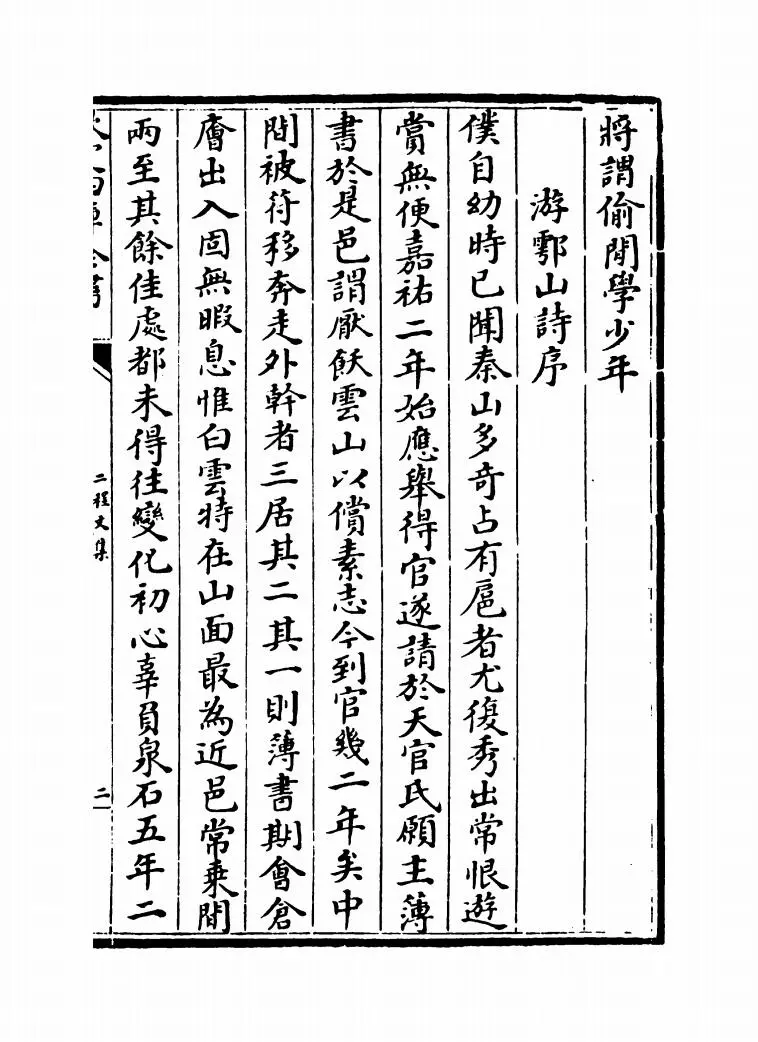 將謂偷閒學少年
游鄠山詩序
僕自幼時已聞秦山多奇占有扈者尤復秀出常恨遊
賞無便嘉祐二年始應舉得官遂請於天官氏願主簿
書於是邑謂厭飫雲山以償素志今到官幾二年矣中
間被符移奔走外幹者三居其二其一則簿書期會倉
廥出入固無暇息惟白雲特在山面最為近邑常乗間
兩至其餘佳處都未得往變化初心辜負泉石五年二
二程文集
二